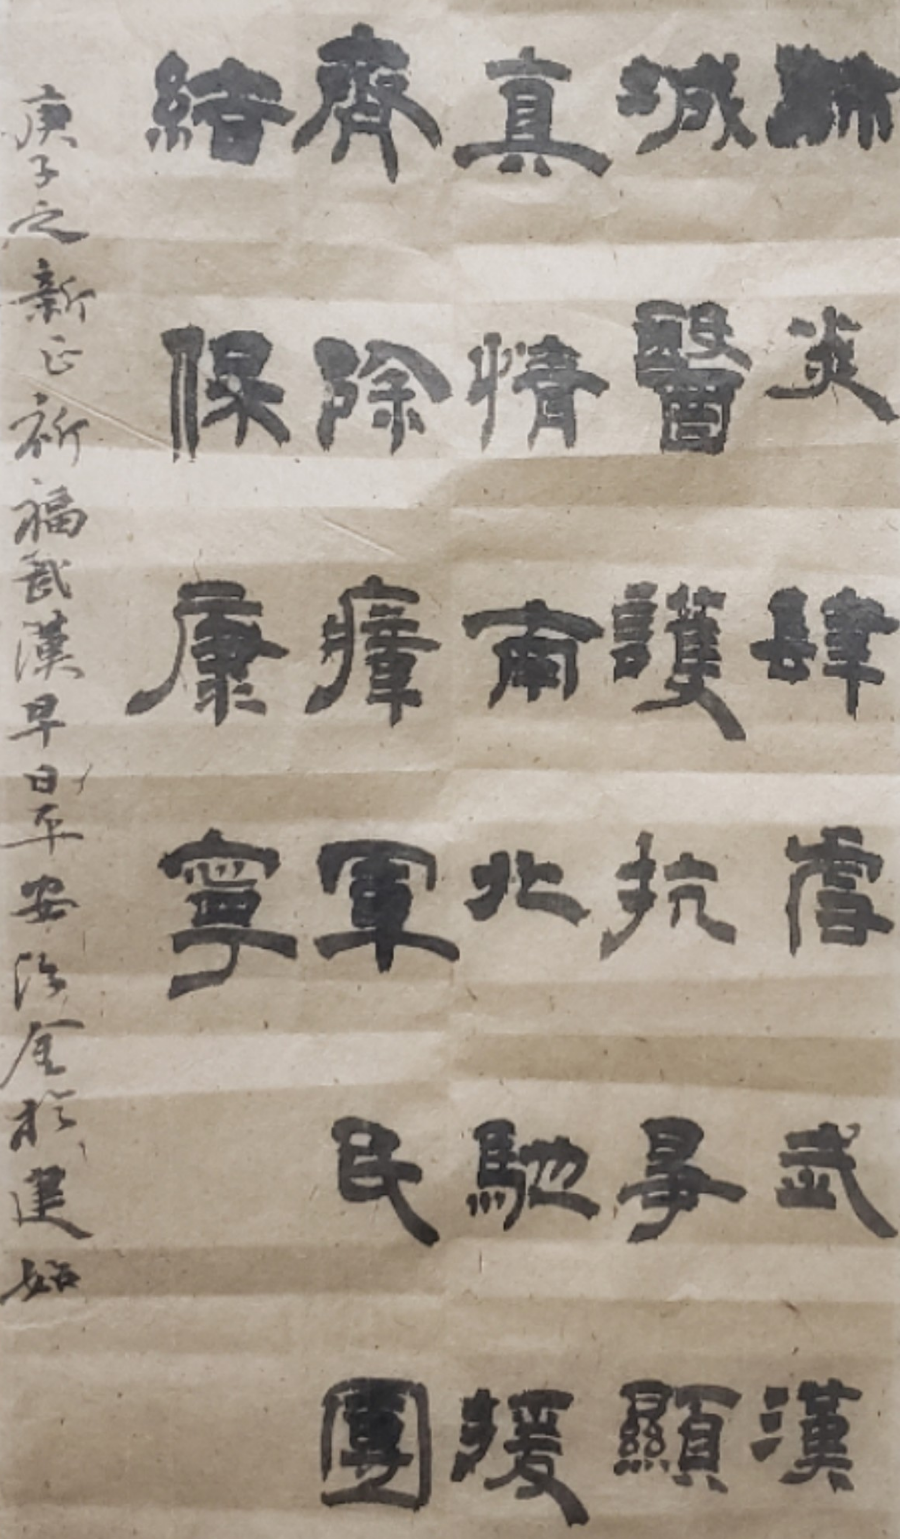 肺炎肆虐武漢
城醫護抗爭顯
真情南北馳援
齊除瘴軍民團
結保康寧
庚子之新正祈福武漢早日平安金於建始